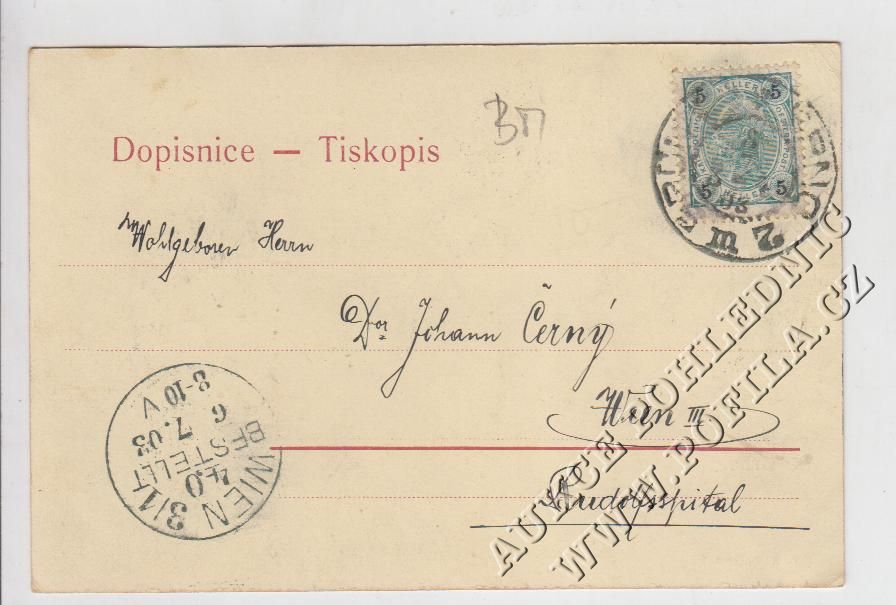 Dopisnice — Tiskopis
Wohlgeboren Herrn
Dor Johann Černý
Wien III.
Rudolfsspital
5 HELLER 5
5 HELLER 5
03
2 III
WIEN 3/1
40
BESTELLT
6 7.03
8-10 V
AUKCE POHLEDNIC
WWW.POFILA.CZ